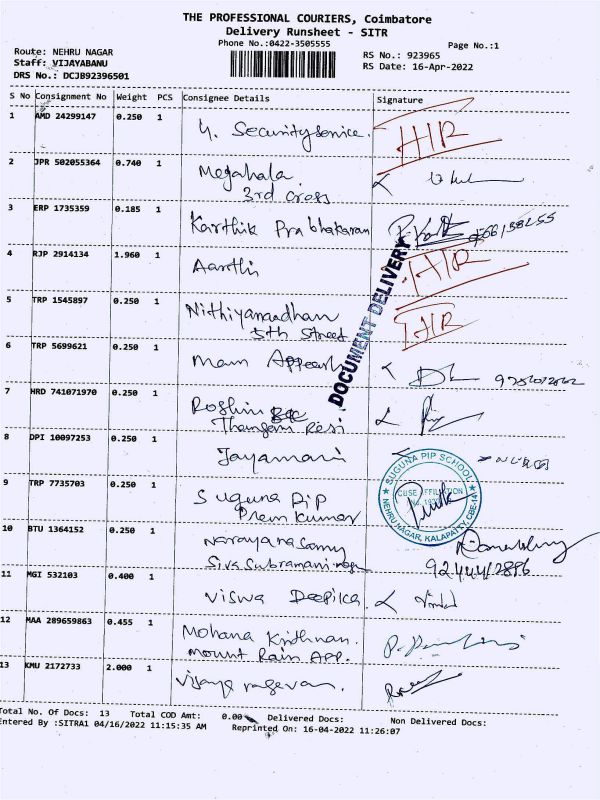 THE PROFESSIONAL COURIERS, Coimbatore
Delivery Runsheet - SITR
Phone No.:0422-3505555
Page No.:1
Route: NEHRU NAGAR
Staff: VIJAYABANU
DRS No.: DCJB92396501
RS No.: 923965
RS Date: 16-Apr-2022
S No Consignment No Weight PCS Consignee Details Signature
1 AMD 24299147 0.250 1 4. Security Service.
2 JPR 502055364 0.740 1 Megahala
3rd cross
3 ERP 1735359 0.185 1 Karthik Prabhakaran
4 RJP 2914134 1.960 1 Aarthi
5 TRP 1545897 0.250 1 Nithiyanandhan
5th Street
6 TRP 5699621 0.250 1 Mam
7 HRD 741071970 0.250 1 Roshini
Thangam Resi
8 DPI 10097253 0.250 1 Jayamani
9 TRP 7735703 0.250 1 Suguna Pip
Prem Kumar
10 BTU 1364152 0.250 1 Narayanasamy
Siva Subramani
11 MGI 532103 0.400 1 Viswa Deepika
12 MAA 289659863 0.455 1 Mohana Krithnan.
Mount Rain App.
13 KMU 2172733 2.000 1 Vijaya ragavan.
DOCUMENT DELIVERY
SUGUNA PIP SCHOOL
NEHRU NAGAR, KALAPATTY, CBE-14
Total No. Of Docs: 13 Total COD Amt: 0.00 Delivered Docs: Non Delivered Docs:
Entered By :SITRA1 04/16/2022 11:15:35 AM Reprinted On: 16-04-2022 11:26:07